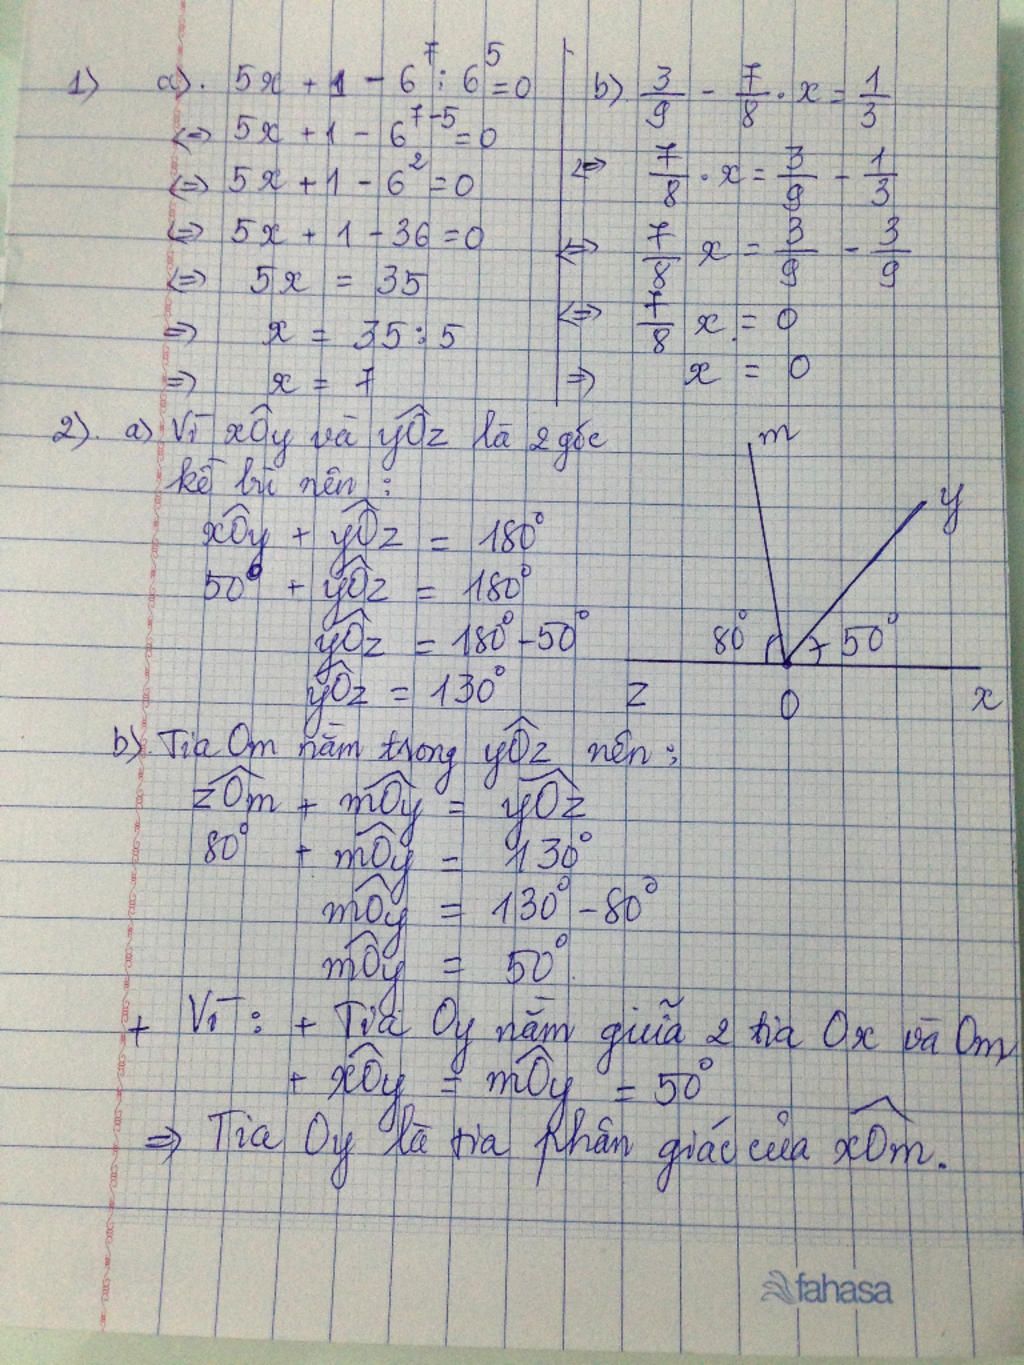 1) a). 5x + 1 - 6^7 : 6^5 = 0
<=> 5x + 1 - 6^{7-5} = 0
<=> 5x + 1 - 6^2 = 0
<=> 5x + 1 - 36 = 0
<=> 5x = 35
=> x = 35 : 5
=> x = 7
b) 3/9 - 7/8 . x = 1/3
<=> 7/8 . x = 3/9 - 1/3
<=> 7/8 x = 3/9 - 3/9
<=> 7/8 x = 0
=> x = 0
2). a) Vì xOy và yOz là 2 góc
kề bù nên :
xOy + yOz = 180°
50° + yOz = 180°
yOz = 180° - 50°
yOz = 130°
m
y
80° 50°
z O x
b) Tia Om nằm trong yOz nên :
zOm + mOy = yOz
80° + mOy = 130°
mOy = 130° - 80°
mOy = 50°.
+ Vì : + Tia Oy nằm giữa 2 tia Ox và Om
+ xOy = mOy = 50°
=> Tia Oy là tia phân giác của xOm.
fahasa